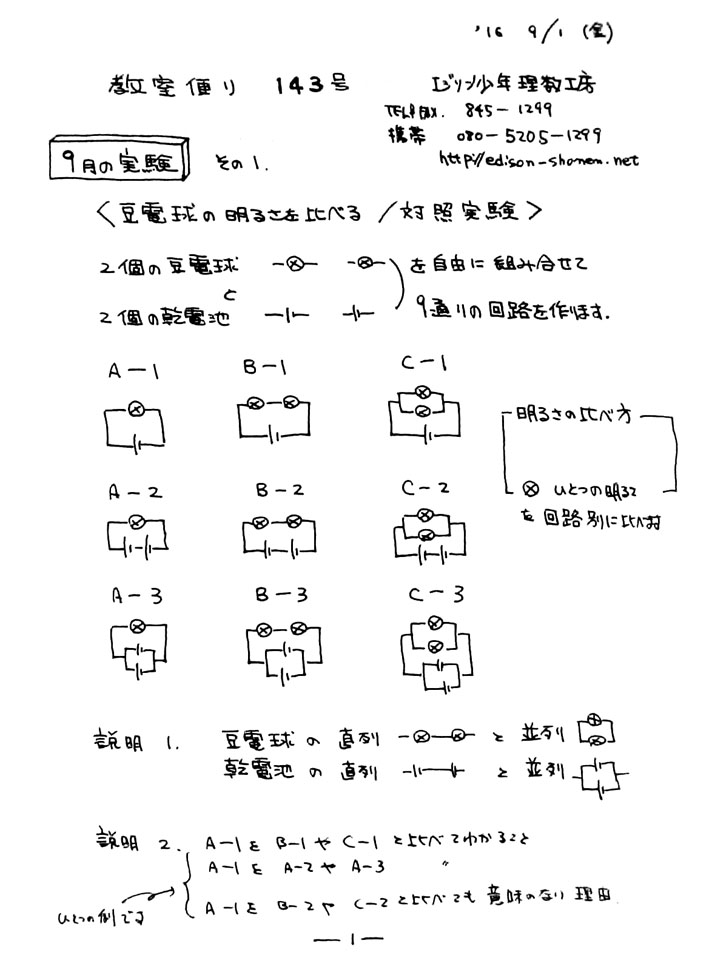 '16 9/1 (金)
教室便り 143号 エジソン少年理数工房
TEL&FAX. 845-1299
携帯 080-5205-1299
http://edison-shonen.net
9月の実験 その1.
〈豆電球の明るさを比べる/対照実験〉
2個の豆電球
と
2個の乾電池
を自由に組み合せて
9通りの回路を作ります.
A-1 B-1 C-1
明るさの比べ方
ひとつの明るさ
を回路別に比べます
A-2 B-2 C-2
A-3 B-3 C-3
説明 1. 豆電球の直列 と 並列
乾電池の直列 と 並列
説明 2. A-1を B-1や C-1 と比べてわかること
A-1を A-2や A-3 〃
A-1を B-2や C-2と比べても意味のない理由.
ひとつの例です
-1-